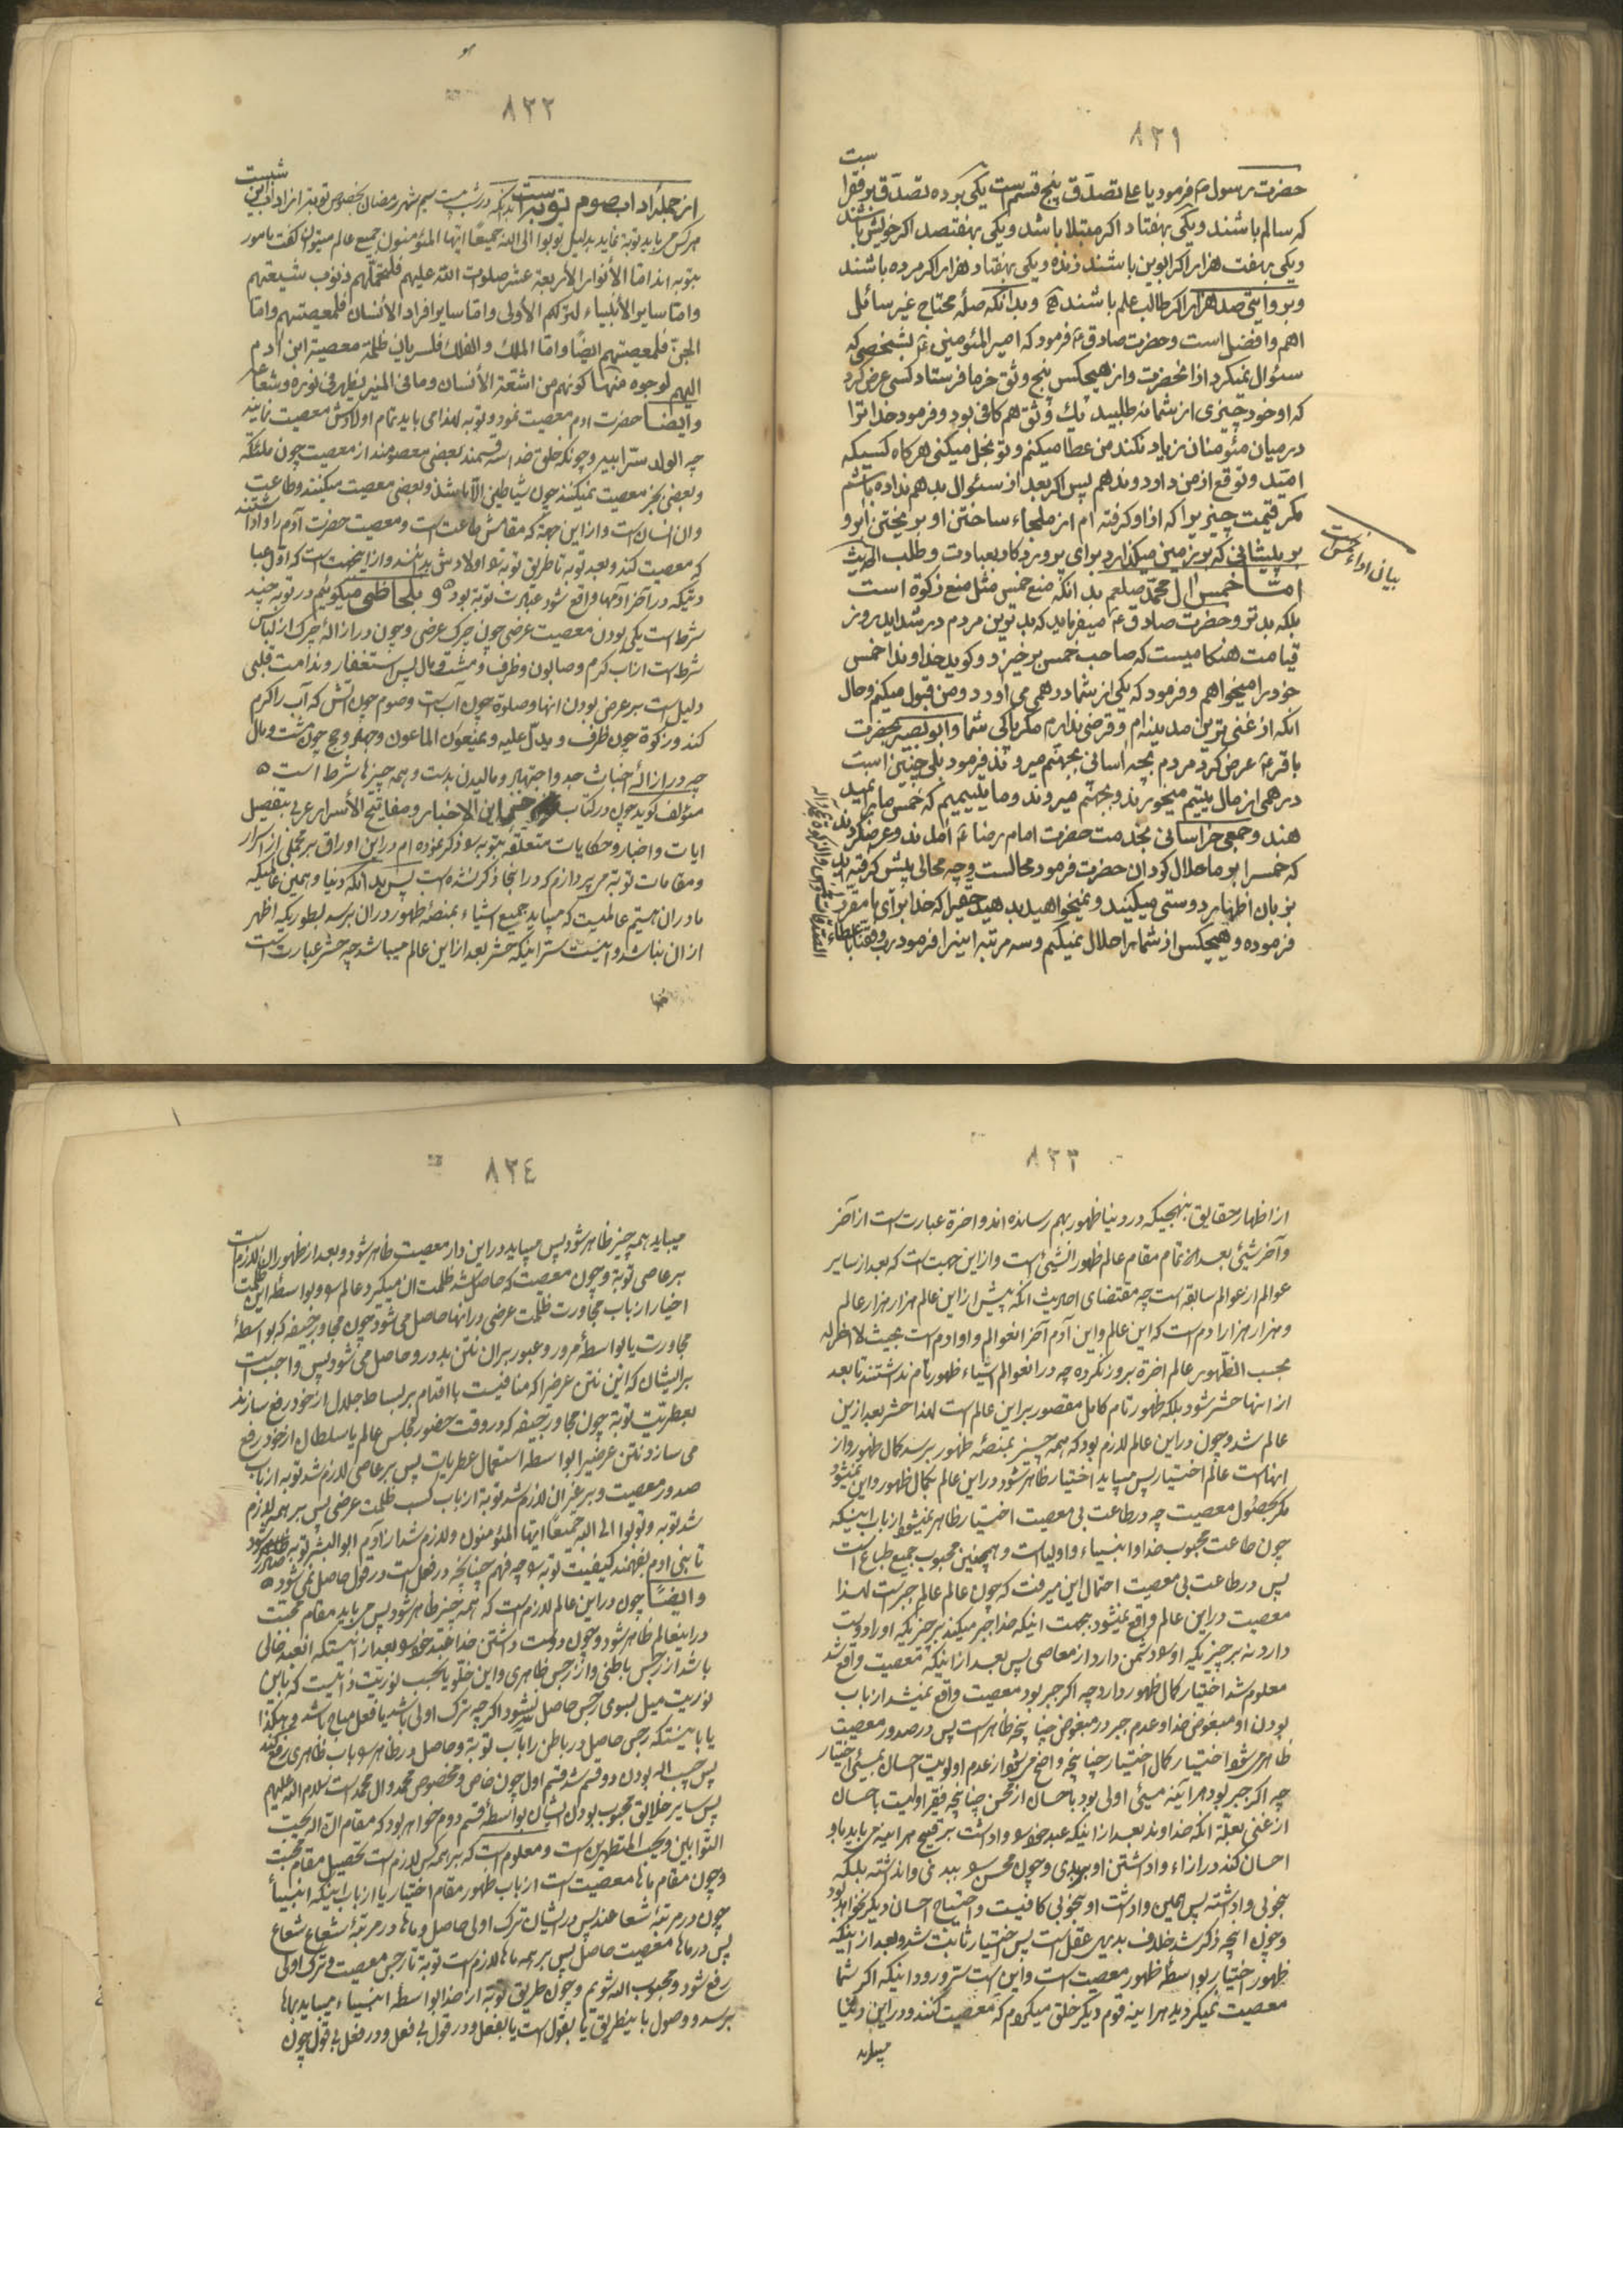 ۸۳۱
حضرت رسول ص فرمود یا علی تصدّق پنج قسم است یکی بوده تصدّق بر فقرا
که سالم باشند و یکی بهفتاد اگر مبتلا باشد و یکی بهفتصد اگر خویش باشند
و یکی بهفت هزار اگر ابوین باشند زنده و یکی بهفتاد هزار اگر مرده باشند
و بروایتی صد هزار اگر طالب علم باشند و بدانکه صلهٔ محتاج غیر سائل
اهم و افضل است و حضرت صادق ع فرمود که امیر المؤمنین ع بشخصی که
سئوال نمیکرد از آنحضرت و از هیچکس پنج وثق خرما فرستاد کسی عرض کرد
که او خود چیزی از شما نه طلبید یک وثق هم کافی بود و فرمود خدا ترا
در میان مئومنان زیاد نکند من عطا میکنم و تو بخل میکنی هرگاه کسیکه
امید و توقع از من دارد و ندهم پس اگر بعد از سئوال بدهم نداده باشم
مگر قیمت چیزیرا که از او گرفته ام از ملجاء ساختن او بریختن ابرو
بر پیشانی که بر زمین میگذارد برای پروردگار بعبادت و طلب الحدیث
بیان اداء خمس است
امّا خمس ال محمّد صلعم بدانکه منع خمس مثل منع زکوة است
بلکه بدتر و حضرت صادق ع میفرماید که بدترین مردم در شداید روز
قیامت هنگامیست که صاحب خمس برخیزد و گوید خداوندا خمس
خود را میخواهم و فرمود که یکی از شما درهمی می آورد و من قبول میکنم و حال
آنکه از غنی ترین مدینه ام و قرضی ندارم مگر پاکی شما و ابو بصیر بحضرت
باقر ع عرض کرد مردم بچه اسانی بجهنّم میروند فرمود بلی چنین است
درهمی از مال یتیم میخورند و بجهنّم میروند و مائیم یتیم که خمس ما را نمید
هند و جمعی خراسانی بخدمت حضرت امام رضا ع آمدند و عرض کردند
که خمس را بر ما حلال گردان حضرت فرمود محالست و چه محالی پیش گرفته اید
بزبان اظهار دوستی میکنید و نمیخواهید بدهید حقی را که خدا برای ما مقرّر
فرموده و هیچکس از شما را حلال نمیکنم و سه مرتبه اینرا فرمود
۸۳۲
از جمله اداب صوم توبه است بدانکه در شب بیست سیم شهر رمضان بخصوص توبه از اداب این شبست
هر کس را باید توبه نماید بدلیل توبوا الی الله جمیعًا ایّها المؤمنون جمیع عالم میتوان گفت مامور
بتوبه اند امّا الأنوار الأربعة عشر صلوات الله علیهم فلتحمّلهم ذنوب شیعتهم
و امّا سایر الأنبیاء لترکهم الأولی و امّا سایر افراد الأنسان فلمعصیتهم و امّا
الجنّ فلمعصیتهم ایضًا و امّا الملک و الفلک فلسریان ظلمة معصیة ابن ادم
الیهم لوجوه منها کونهم من اشعّة الأنسان و ما فی المنیر یظهر فی نوره و شعاعه
و ایضًا حضرت ادم معصیت نمود و توبه لهذا می باید تمام اولادش معصیت نمایند
چه الولد سرّ ابیه و چونکه خلق خدا سه قسمند بعضی معصومند از معصیت چون ملئکه
و بعضی بجز معصیت نمیکنند چون شیاطین و بعضی معصیت میکنند و طاعت
و ان انسان است و از این جهة که مقامش طاعت است و معصیت حضرت آدم را وا داشتند
که معصیت کند و بعد توبه تا طریق توبه باولادش بماند و از اینجهت است که اوّل عبا
دتیکه در آخر آدمها واقع شود عبادت توبه بود و بلحاظی میگوئیم در توبه چند
شرط است یکی بودن معصیت عرضی چون چرک عرضی و چون در ازالهٔ چرک از لباس
شرط است از آب گرم و صابون و ظرف و مشت و مال پس استغفار و ندامت قلبی
دلیل است بر عرضی بودن انها و صلوة چون آب است و صوم چون اتش که آب را گرم
کند و زکوة چون ظرف و یدلّ علیه و یمنعون الماعون و جهاد و حج چون مشت و مال
چه در ازالهٔ خباثت جد و اجتهاد و مالیدن بدست و همه چیزها شرط است
مؤلف گوید چون در کتاب این الاخبار و مفاتیح الأسرار عربی بتفصیل
ایات و اخبار و حکایات متعلقه بتوبه را ذکر نموده ام در این اوراق بر مجملی از اسرار
و مقامات توبه می پردازم که در انجا ذکر نشده است پس بدانکه دنیا و همین عالمیکه
ما در ان هستیم عالمیست که میباید جمیع اشیاء بمنصهٔ ظهور در ان برسد بطوریکه اظهر
از ان نباشد و اینست سرّ اینکه حشر بعد از این عالم میباشد چه حشر عبارت است
۸۳۳
از اظهار حقایق بنهجیکه در دنیا ظهور بهم رسانده اند و اخرة عبارت است از آخر
و آخر شیئ بعد از تمام مقام عالم ظهور انشیئ است و از این جهت است که بعد از سایر
عوالم از عوالم سابقه است چه مقتضای احادیث انکه پیش از این عالم هزار هزار عالم
و هزار هزار ادم است که این عالم و این آدم آخر انعوالم و اوادم است بحیث لا اخر له
بحسب الظّهور عالم اخرة بروز نکرده چه در انعوالم اشیاء ظهور تام نداشتند تا بعد
از انها حشر شود بلکه ظهور تام کامل مقصور بر این عالم است لهذا حشر بعد ازین
عالم شد و چون در این عالم لازم بود که همه چیز بمنصّه ظهور برسد کمال ظهور و از
انهاست عالم اختیار پس میباید اختیار ظاهر شود در این عالم بکمال ظهور و این نمیشود
مگر بحصول معصیت چه در طاعت بی معصیت اختیار ظاهر نمیشود از باب اینکه
چون طاعت محبوب خدا و انبیاء و اولیاست و همچنین محبوب جمیع طباع است
پس در طاعت بی معصیت احتمال این میرفت که چون عالم عالم جبر است لهذا
معصیت در این عالم واقع نمیشود بجهت اینکه خدا جبر میکند بر چیزیکه او را دوست
دارد نه بر چیزیکه او را دشمن دارد از معاصی پس بعد از اینکه معصیت واقع شد
معلوم شد اختیار کمال ظهور دارد چه اگر جبر بود معصیت واقع نمیشد از باب
بودن او مبغوض خدا و عدم جبر در مبغوض چنانچه ظاهر است پس در صدور معصیت
ظاهر می شود اختیار کمال اختیار چنانچه واضح میشود از عدم اولویت احسان بمسیئ اختیار
چه اگر جبر بود هر آئینه مسیئ اولی بود باحسان از محسن چنانچه فقیر اولیست باحسان
از غنی بعلّة انکه خداوند بعد از اینکه عبد خود را وا داشت بر قبیح هر اینه می باید باو
احسان کند در ازاء وا داشتن او ببدی و چون محسن را ببدی وا نداشته بلکه
بخوبی وا داشته پس همین وا داشت او بخوبی کافیست و احتیاج احسان دیگر نخواهد بود
و چون انچه ذکر شد خلاف بدیهی عقل است پس اختیار ثابت شد و بعد از اینکه
ظهور اختیار بواسطهٔ ظهور معصیت است و این است سرّ ورود اینکه اگر شما
معصیت نمیکردید هر اینه قوم دیگر خلق میکردم که معصیت کنند و در این دنیا
میباید
۸۳٤
میباید همه چیز ظاهر شود پس میباید در این دار معصیت ظاهر شود و بعد از ظهور ان لازم است
بر عاصی توبة و چون معصیت که حاصل شد ظلمت ان میگیرد عالم را و بواسطهٔ این ظلمت
اخیار از باب مجاورت ظلمت عرضی در انها حاصل می شود چون مجاور جیفه که بواسطهٔ
مجاورت یا بواسطهٔ مرور و عبور بر ان نتن بد در او حاصل می شود پس واجب است
بر ایشان که این نتن عرضیرا که منافیست با اقدام بر بساط جلال از خود رفع سازند
بعطریّت توبة چون مجاور جیفه که در وقت حضور مجلس عالم یا سلطان از خود رفع
می سازد نتن عرضیرا بواسطه استعمال عطریات پس بر عاصی لازم شد توبه از باب
صدور معصیت و بر غیر ان لازم شد توبة از باب کسب ظلمت عرضی پس بر همه لازم
شد توبه و توبوا الی الله جمیعًا ایّها المؤمنون و لازم شد از آدم ابو البشر توبه صادر شود
تا بنی ادم بفهمند کیفیت توبه را چه فهم چنانچه در فعل است در قول حاصل نمی شود
و ایضًا چون در این عالم لازم است که همه چیز ظاهر شود پس می باید مقام محبّت
در اینعالم ظاهر شود و چون دوست داشتن خدا عبد خود را بعد از اینستکه انعبد خالی
باشد از رجس باطنی و از رجس ظاهری و این خلوّ یا بحسب نوریّت ذاتیست که باین
نوریت میل بسوی رجس حاصل نمیشود اگر چه ترک اولی باشد یا فعل مباح باشد و هکذا
یا باینستکه رجس حاصل در باطن را باب توبة و حاصل در ظاهر را باب ظاهری رفع کند
پس حبیب اله بودن دو قسم شد قسم اول چون خاص و مخصوص محمد و ال محمد است سلام الله علیهم
پس سایر خلایق محبوب بودن ایشان بواسطهٔ قسم دوم خواهد بود که مقام انّ اله یحبّ
التّوابین و یحبّ المتطهرین است و معلوم است که بر همه کس لازم است تحصیل مقام محبّت
و چون مقام ماها معصیت است از باب ظهور مقام اختیار یا از باب اینکه انبیاء
چون در مرتبهٔ شعاعند پس در ایشان ترک اولی حاصل و ماها در مرتبهٔ شعاع شعاع
پس در ماها معصیت حاصل پس بر همه ماها لازم است توبة تا رجس معصیت و ترک اولی
رفع شود و محبوب الله شویم و چون طریق توبه از خدا بواسطهٔ انبیاء میباید بماها
برسد و وصول باینطریق یا بقول است یا بفعل و در قول بی فعل و در فعل بی قول چون